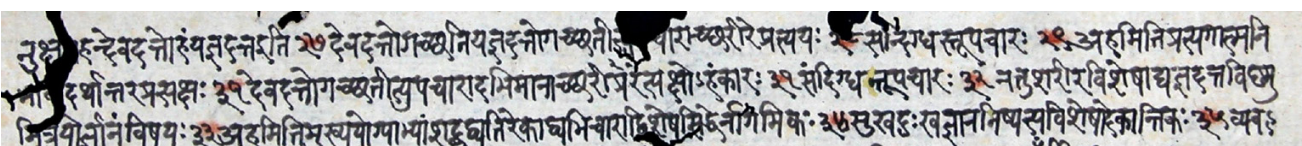 हन्देवदत्तोहंयज्ञदत्तइति २७ देवदत्तोगच्छतियज्ञदत्तोगच्छती चाराच्छरीरेप्रत्ययः २८ संदिग्धस्तूपचारः २९ अहमितिप्रत्यगात्मनि
दर्थान्तरप्रत्यक्षः ३० देवदत्तोगच्छतीत्युपचारादभिमानाच्छरीरप्रत्यक्षोऽहंकारः ३१ संदिग्धस्तूपचारः ३२ नतुशरीरविशेषाद्यज्ञदत्तविष्णु
मित्रयोर्ज्ञानंविषयः ३३ अहमितिमुख्ययोग्याभ्यांशब्दवद्व्यतिरेकाव्यभिचाराद्विशेषसिद्धेर्नागमिकः ३४ सुखदुःखज्ञाननिष्पत्त्यविशेषादेकान्तिकः ३५ व्यव